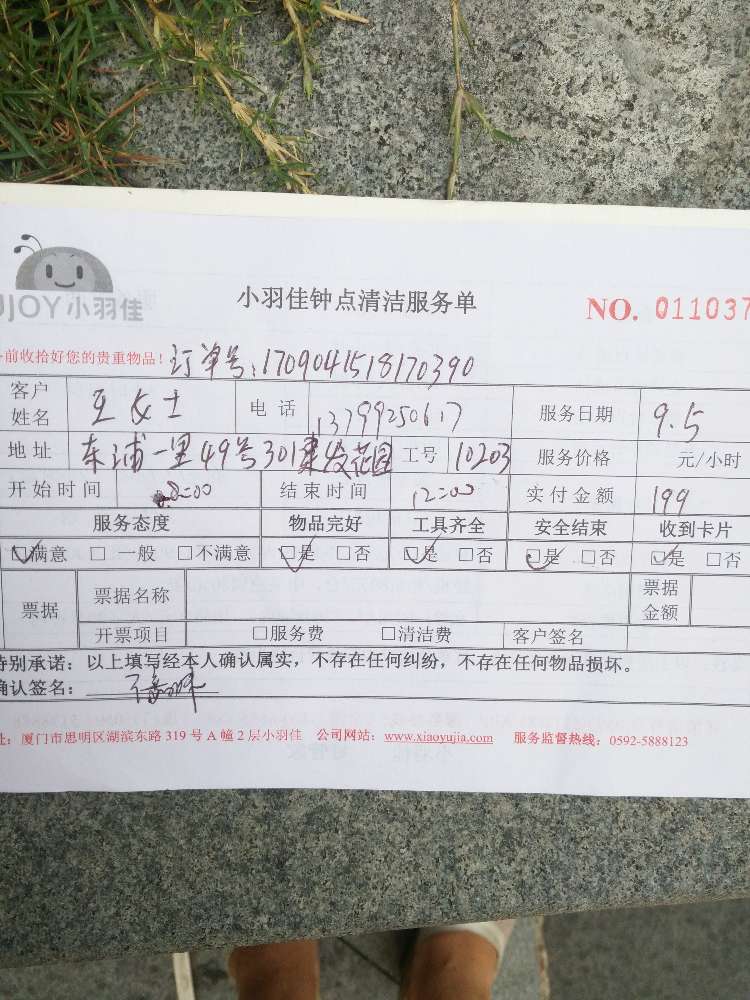 UJOY小羽佳
小羽佳钟点清洁服务单
NO. 011037
前收拾好您的贵重物品！ 订单号：1709041518170390
客户姓名 王女士 电话 13799250617 服务日期 9.5
地址 东浦一里49号301建发花园 工号 10203 服务价格 元/小时
开始时间 8:00 结束时间 12:00 实付金额 199
服务态度 物品完好 工具齐全 安全结束 收到卡片
☑满意 □ 一般 □不满意 ☑是 □否 ☑是 □否 ☑是 □否 ☑是 □否
票据 票据名称 票据金额
开票项目 □服务费 □清洁费 客户签名
特别承诺：以上填写经本人确认属实，不存在任何纠纷，不存在任何物品损坏。
确认签名：
址：厦门市思明区湖滨东路 319 号 A 幢 2 层小羽佳 公司网站：www.xiaoyujia.com 服务监督热线：0592-5888123